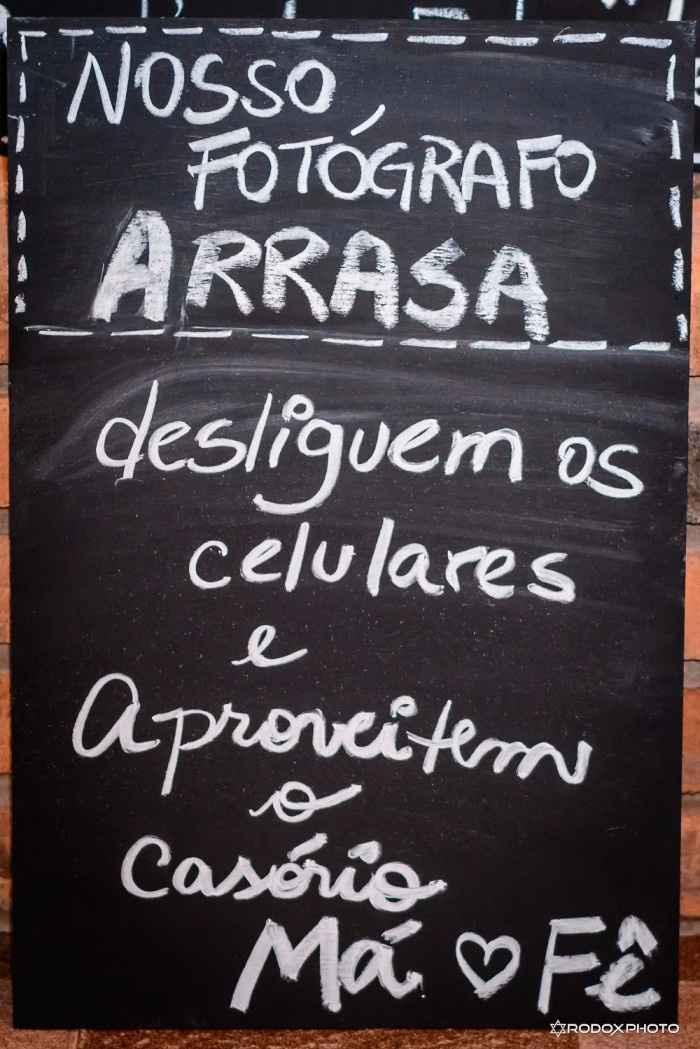 NOSSO
FOTÓGRAFO
ARRASA
desliguem os
celulares
e
Aproveitem
o
Casório
Má ♡ Fê
RODOXPHOTO